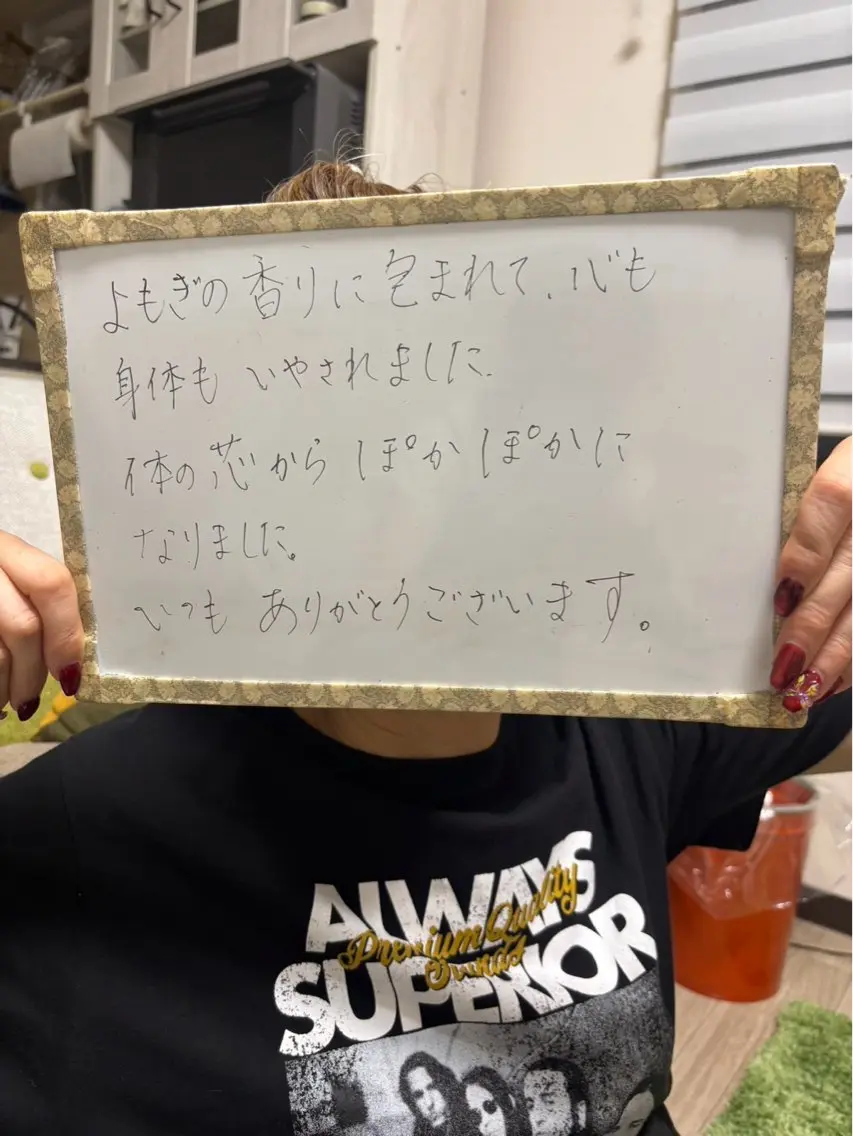 よもぎの香りに包まれて、心も
身体もいやされました。
体の芯からぽかぽかに
なりました。
いつもありがとうございます。
ALWAYS
Premium Quality
SUPERIOR